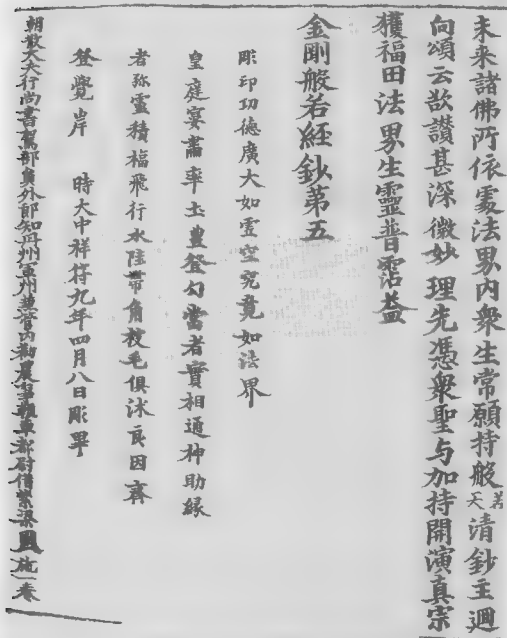 未来諸佛所依處法界内衆生常願持般若天清鈔主迴
向頌云欲讃甚深微妙理先憑衆聖与加持開演真宗
獲福田法界生靈普霑益
金剛般若經鈔苐五
彫印功德廣大如虚空究竟如法界
皇庭宴肅率土豊登勾當者實相通神助緣
者弥靈積福飛行水陸帶角披毛俱沐良因齊
登覺岸 時大中祥符九年四月八日彫畢
朝散大夫行尚書駕部員外郎知丹州軍州兼管内勸農事輕車都尉借紫梁施一卷